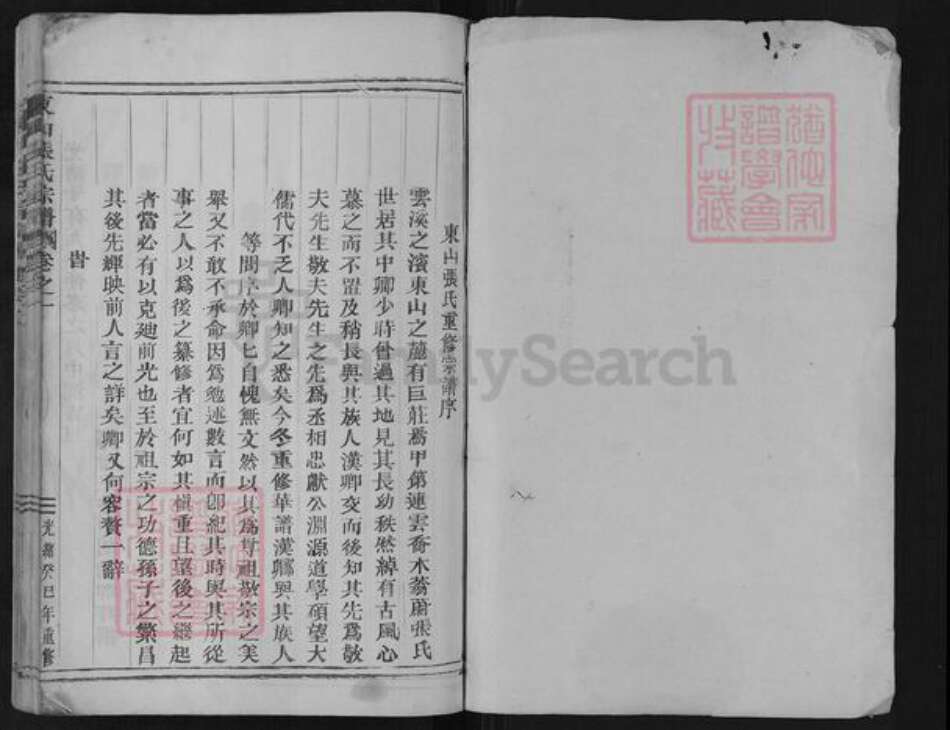 東山張氏重修宗譜序
雲溪之濱東山之麓有巨莊焉甲第連雲喬木蓊蔚張氏
世居其中卿少時曾過其地見其長幼秩然綽有古風心
慕之而不置及稍長與其族人漢卿交而後知其先爲敬
夫先生敬夫先生之先爲丞相忠獻公淵源道學碩望大
儒代不乏人卿知之悉矣今冬重修華譜漢卿與其族人
等問序於卿卿自愧無文然以其爲尊祖敬宗之美
舉又不敢不承命因爲勉述數言而卽紀其時與其所從
事之人以爲後之纂修者宜何如其愼重且望後之繼起
者當必有以克廸前光也至於祖宗之功德孫子之繁昌
其後先輝映前人言之詳矣卿又何容贅一辭
旹
東山張氏宗譜 卷之一
光緒癸巳年重修
譜學會
收藏
MySearch